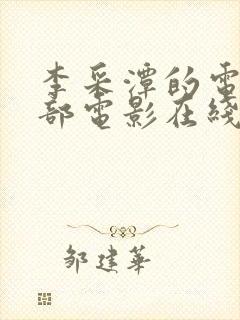 李采潭的電
部電影在綫
邹建華